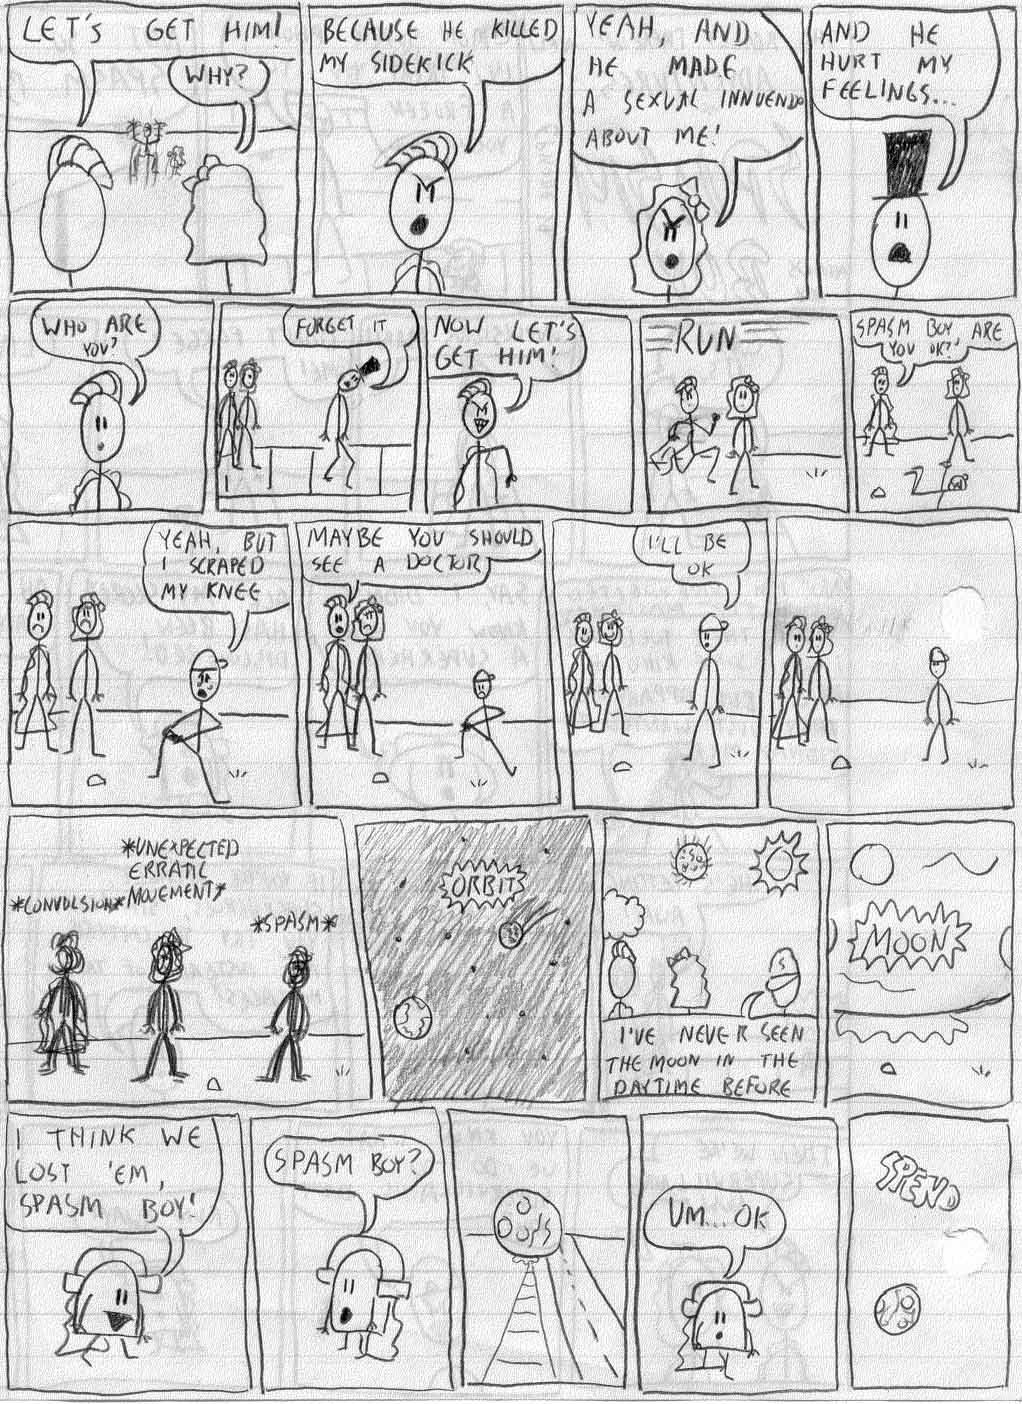 LET'S GET HIM!
WHY?
BECAUSE HE KILLED
MY SIDEKICK
YEAH, AND
HE MADE
A SEXUAL INNUENDO
ABOUT ME!
AND HE
HURT MY
FEELINGS...
WHO ARE
YOU?
FORGET IT
NOW LET'S
GET HIM!
RUN
SPASM BOY, ARE
YOU OK?
YEAH, BUT
I SCRAPED
MY KNEE
MAYBE YOU SHOULD
SEE A DOCTOR
I'LL BE
OK
*CONVULSION*
*UNEXPECTED
ERRATIC
MOVEMENT*
*SPASM*
ORBIT
I'VE NEVER SEEN
THE MOON IN THE
DAYTIME BEFORE
MOON
I THINK WE
LOST 'EM,
SPASM BOY!
SPASM BOY?
UM... OK
SPEND